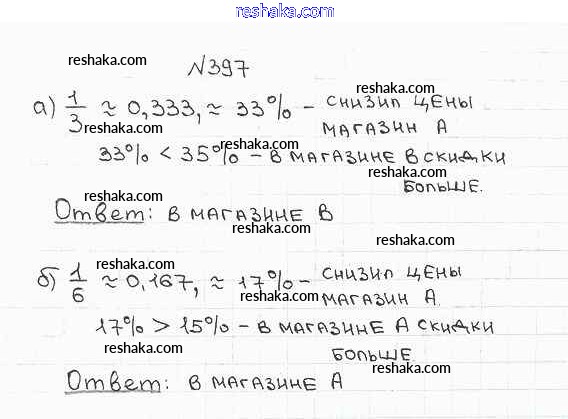 reshaka.com
reshaka.com
№397
а) 1/3 ≈ 0,333, ≈ 33% - снизил цены
reshaka.com
reshaka.com
магазин А
33% < 35% - в магазине В скидки
reshaka.com
reshaka.com
больше.
reshaka.com
Ответ: в магазине В
reshaka.com
reshaka.com
б) 1/6 ≈ 0,167, ≈ 17% - снизил цены
reshaka.com
магазин А.
reshaka.com
17% > 15% - в магазине А скидки
reshaka.com
reshaka.com
больше
reshaka.com
Ответ: в магазине А
reshaka.com